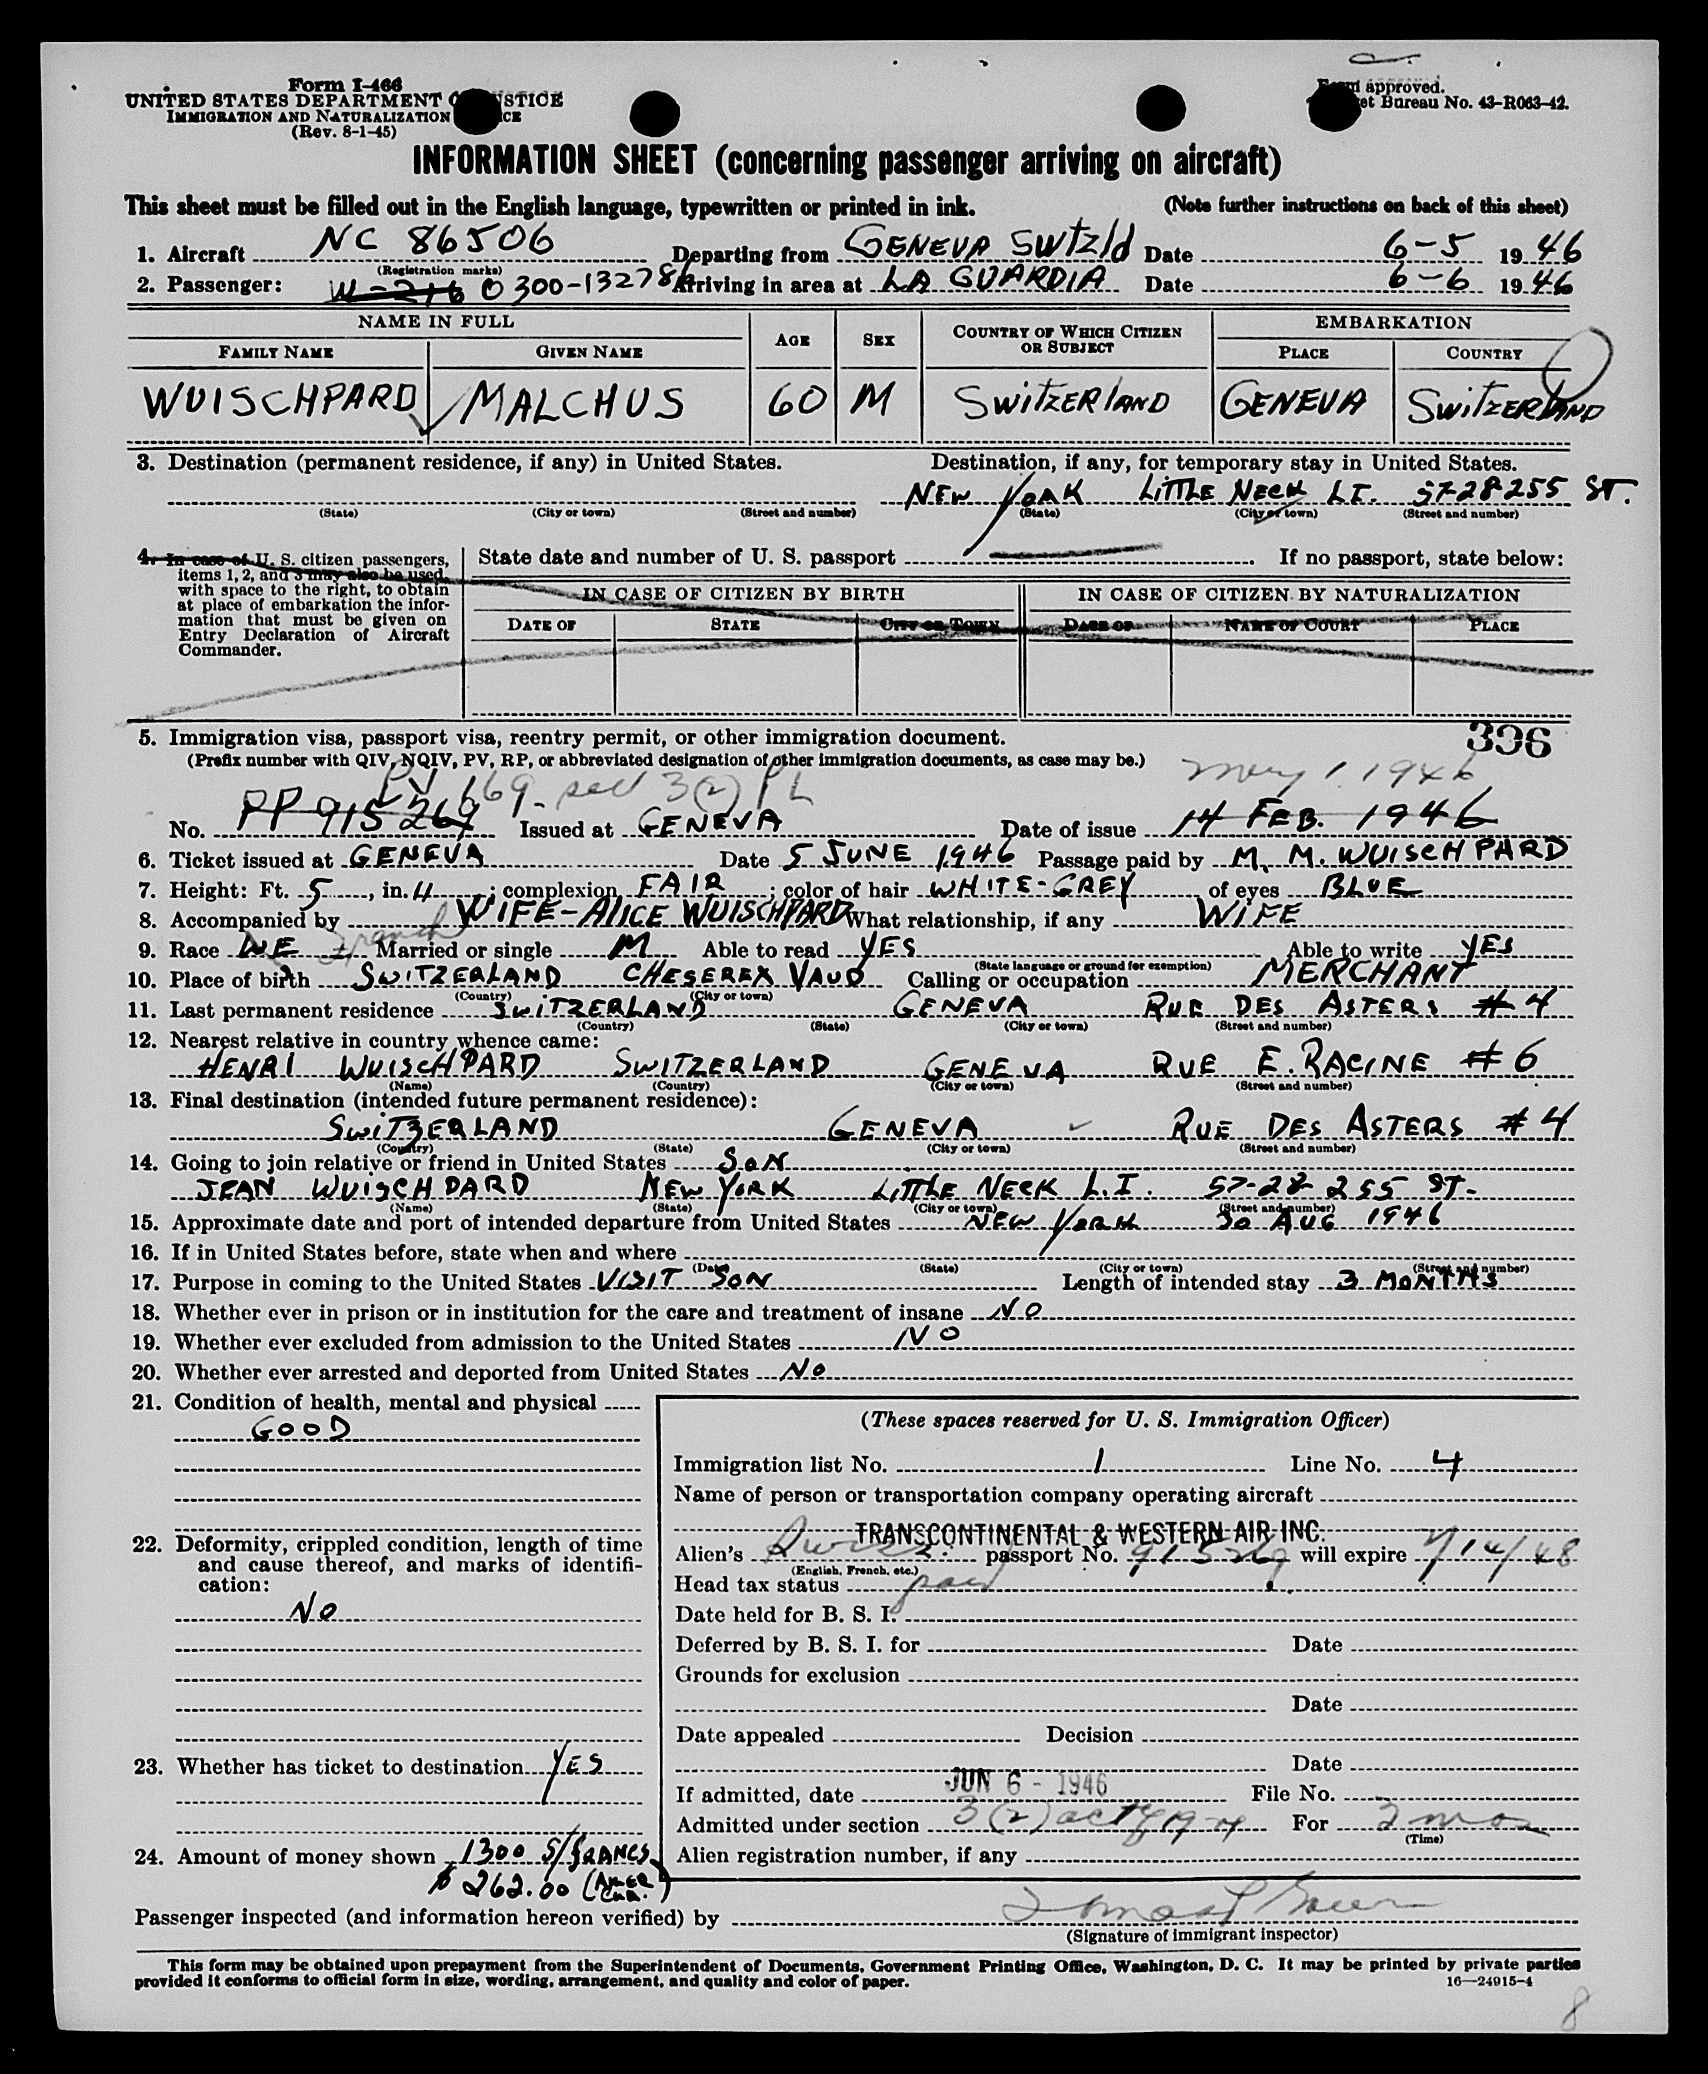 Form I-466
UNITED STATES DEPARTMENT STICE
IMMIGRATION AND NATURALIZATION CE
(Rev. 8-1-45)
approved.
et Bureau No. 43-R063-42.
INFORMATION SHEET (concerning passenger arriving on aircraft)
This sheet must be filled out in the English language, typewritten or printed in ink. (Note further instructions on back of this sheet)
1. Aircraft NC 86506 Departing from GENEVA SWTZld Date 6-5 1946
(Registration marks)
2. Passenger: 0300-132786 Arriving in area at LA GUARDIA Date 6-6 1946
NAME IN FULL AGE SEX COUNTRY OF WHICH CITIZEN OR SUBJECT EMBARKATION
FAMILY NAME GIVEN NAME PLACE COUNTRY
WUISCHPARD MALCHUS 60 M SWITZERLAND GENEVA SWITZERLAND
3. Destination (permanent residence, if any) in United States. Destination, if any, for temporary stay in United States.
NEW YORK LITTLE NECK L.I. 57-28-255 ST.
(State) (City or town) (Street and number) (State) (City or town) (Street and number)
4. In case of U. S. citizen passengers, items 1, 2, and 3 may also be used, with space to the right, to obtain at place of embarkation the information that must be given on Entry Declaration of Aircraft Commander.
State date and number of U. S. passport . If no passport, state below:
IN CASE OF CITIZEN BY BIRTH IN CASE OF CITIZEN BY NATURALIZATION
DATE OF STATE CITY OR TOWN DATE OF NAME OF COURT PLACE
396
5. Immigration visa, passport visa, reentry permit, or other immigration document.
(Prefix number with QIV, NQIV, PV, RP, or abbreviated designation of other immigration documents, as case may be.)
PV 169 3(2) May 1 1946
No. PP 915269 Issued at GENEVA Date of issue 14 FEB. 1946
6. Ticket issued at GENEVA Date 5 JUNE 1946 Passage paid by M. M. WUISCHPARD
7. Height: Ft. 5, in. 4; complexion FAIR; color of hair WHITE-GREY of eyes BLUE
8. Accompanied by WIFE-ALICE WUISCHPARD What relationship, if any WIFE
9. Race French Married or single M Able to read YES Able to write YES
(State language or ground for exemption)
10. Place of birth SWITZERLAND CHESEREX VAUD Calling or occupation MERCHANT
(Country) (City or town)
11. Last permanent residence SWITZERLAND GENEVA RUE DES ASTERS #4
(Country) (State) (City or town) (Street and number)
12. Nearest relative in country whence came:
HENRI WUISCHPARD SWITZERLAND GENEVA RUE E. RACINE #6
(Name) (Country) (City or town) (Street and number)
13. Final destination (intended future permanent residence):
SWITZERLAND GENEVA RUE DES ASTERS #4
(Country) (State) (City or town) (Street and number)
14. Going to join relative or friend in United States SON
JEAN WUISCHPARD NEW YORK LITTLE NECK L.I. 57-28-255 ST-
(Name) (State) (City or town) (Street and number)
15. Approximate date and port of intended departure from United States NEW YORK 30 AUG 1946
16. If in United States before, state when and where
(Date) (State) (City or town) (Street and number)
17. Purpose in coming to the United States VISIT SON Length of intended stay 3 MONTHS
18. Whether ever in prison or in institution for the care and treatment of insane NO
19. Whether ever excluded from admission to the United States NO
20. Whether ever arrested and deported from United States NO
21. Condition of health, mental and physical
GOOD
22. Deformity, crippled condition, length of time and cause thereof, and marks of identification:
NO
23. Whether has ticket to destination YES
24. Amount of money shown 1300 S/FRANCS
$262.00 (AMER CUR.)
(These spaces reserved for U. S. Immigration Officer)
Immigration list No. 1 Line No. 4
Name of person or transportation company operating aircraft
TRANSCONTINENTAL & WESTERN AIR INC.
Alien's Swiss passport No. 915269 will expire
(English, French, etc.)
Head tax status paid
Date held for B. S. I.
Deferred by B. S. I. for Date
Grounds for exclusion
Date
Date appealed Decision
Date
If admitted, date JUN 6 - 1946 File No.
Admitted under section 3(2) act of 1924 For mos
(Time)
Alien registration number, if any
Passenger inspected (and information hereon verified) by
(Signature of immigrant inspector)
This form may be obtained upon prepayment from the Superintendent of Documents, Government Printing Office, Washington, D. C. It may be printed by private parties
provided it conforms to official form in size, wording, arrangement, and quality and color of paper. 16—24915-4
8